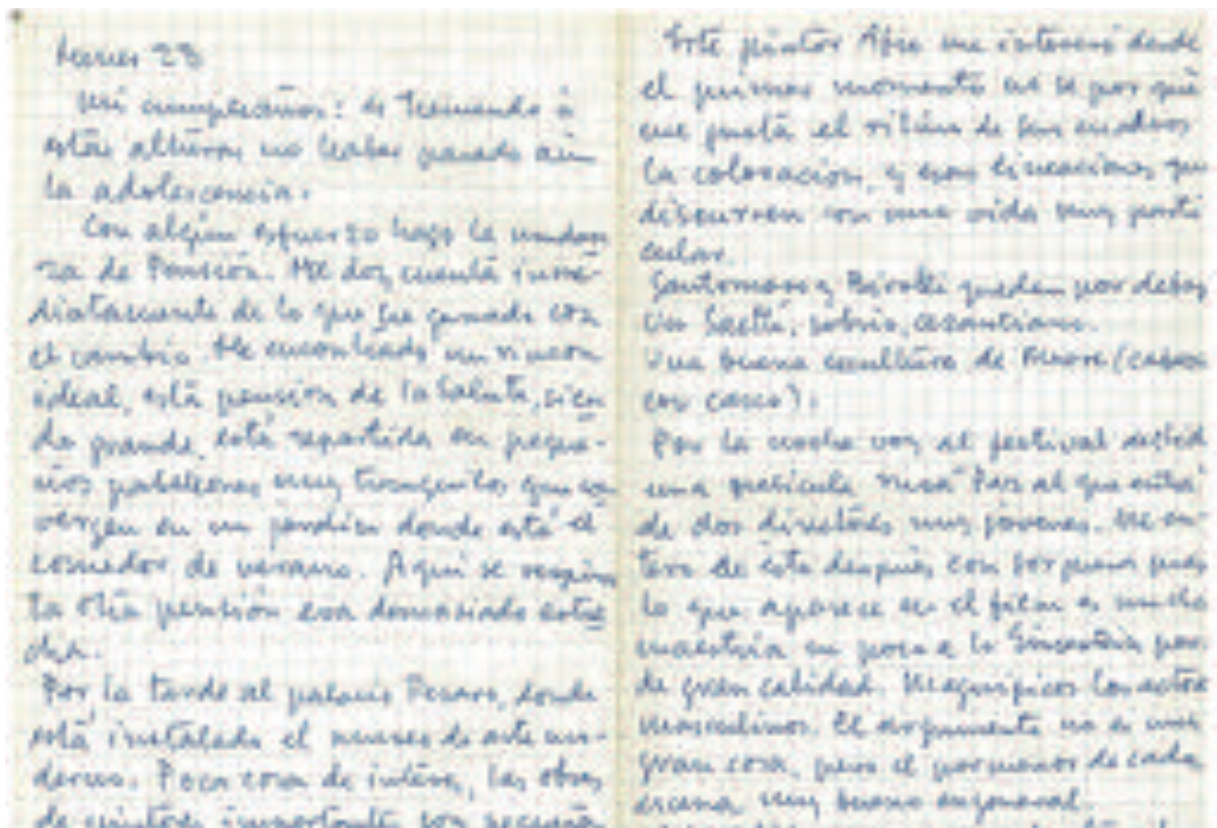 Martes 23
Mi cumpleaños: es tremendo a
estas alturas no haber pasado aún
la adolescencia.
Con algún esfuerzo hago la mudan
za de Pensión. Me doy cuenta inme-
diatamente de lo que he ganado con
el cambio. He encontrado un rincón
ideal, esta pensión de la Salute, sien
do grande, está repartida en peque-
ños pabellones muy tranquilos que con
vergen en un jardín donde está el
comedor de verano. Aquí se respira
la otra pensión era demasiado
Por la tarde al palacio Pesaro, donde
está instalado el museo de arte mo-
derno. Poca cosa de interés, las obras
de pintores importantes son pequeñas
Este pintor Afro me interesó desde
el primer momento no se por qué
me gusta el ritmo de sus cuadros
la coloración, y esas lineaciones que
discurren con una vida muy parti
cular.
Santomaso y Birolli quedan por debajo
Un Saetti, sobrio,
Una buena escultura de Moore (cabeza
con casco).
Por la noche voy al festival
una película rusa "Paz al que entra"
de dos directores muy jóvenes. Me en-
tero de esto después con sorpresa pues
lo que aparece en el film es mucha
maestría
de gran calidad. Magníficos los actores
masculinos. El argumento no es una
gran cosa, pero el pormenor de cada
escena muy bueno en general.